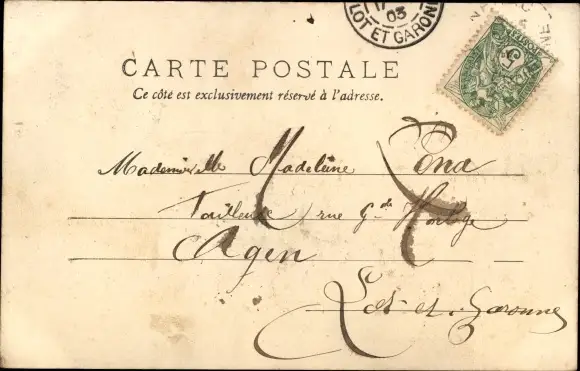 17
03
LOT ET GARON
CARTE POSTALE
Ce côté est exclusivement réservé à l'adresse.
Mademoiselle Madeleine Pena
Tailleuse rue Gde Horloge
Agen
Lot-et-Garonne